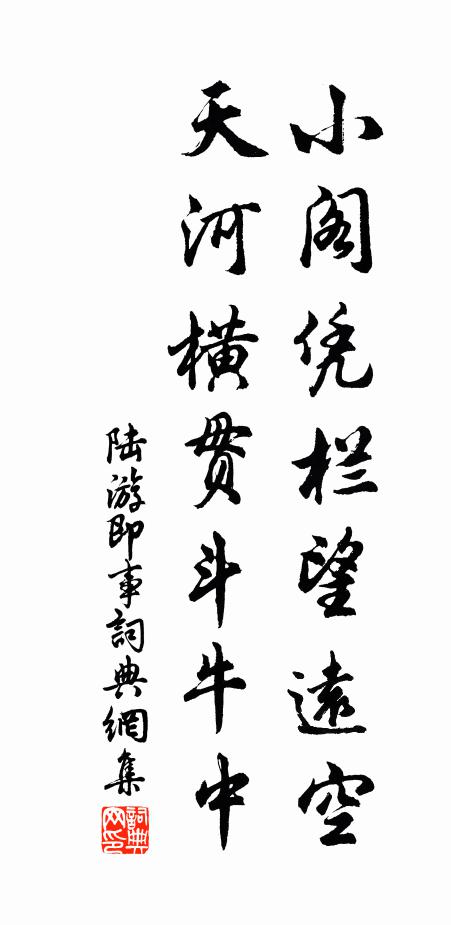 小阁凭栏望遠空
天河横贯斗牛中
陆游即事詞典網集
詞典网印